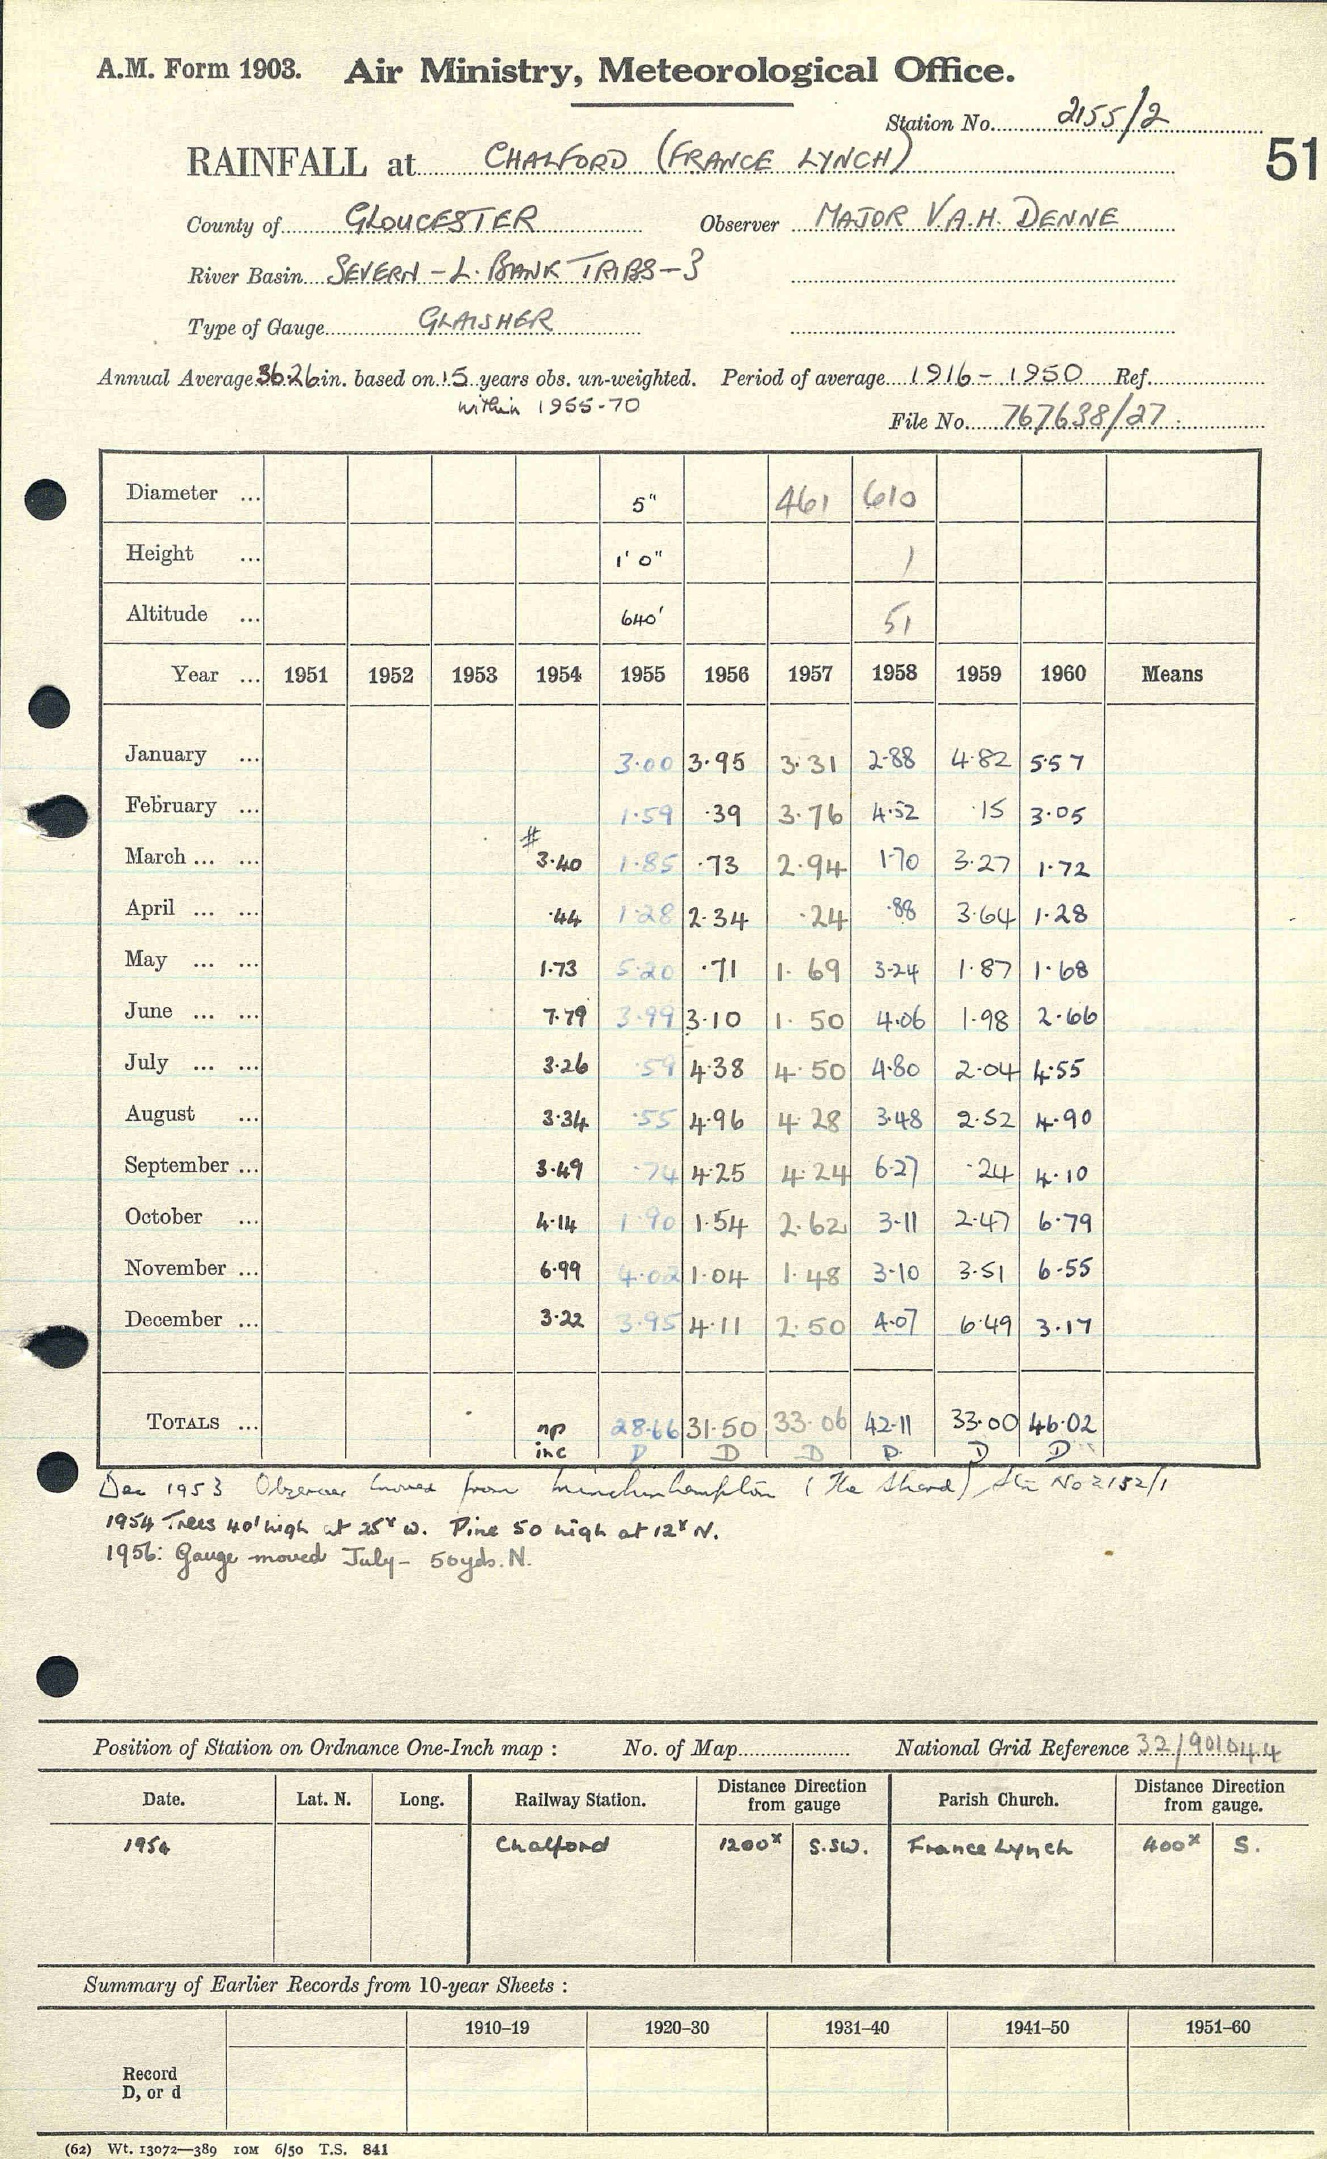 A.M. Form 1903. Air Ministry, Meteorological Office.
Station No. 2155/2
RAINFALL at CHALFORD (FRANCE LYNCH)
51
County of GLOUCESTER Observer MAJOR V.A.H. DENNE
River Basin SEVERN – L. BANK TRIBS – 3
Type of Gauge GLAISHER
Annual Average 36.26 in. based on 15 years obs. un-weighted. Period of average 1916 – 1950 Ref.
within 1955-70
File No. 767638/27
Diameter ... 5" 461 610
Height ... 1' 0" 1
Altitude ... 640' 51
Year ... 1951 1952 1953 1954 1955 1956 1957 1958 1959 1960 Means
January ... 3.00 3.95 3.31 2.88 4.82 5.57
February ... 1.59 .39 3.76 4.52 .15 3.05
#
March ... ... 3.40 1.85 .73 2.94 1.70 3.27 1.72
April ... ... .44 1.28 2.34 .24 .88 3.64 1.28
May ... ... 1.73 5.20 .71 1.69 3.24 1.87 1.68
June ... ... 7.79 3.99 3.10 1.50 4.06 1.98 2.66
July ... ... 3.26 .59 4.38 4.50 4.80 2.04 4.55
August ... 3.34 .55 4.96 4.28 3.48 2.52 4.90
September ... 3.49 .74 4.25 4.24 6.27 .24 4.10
October ... 4.14 1.90 1.54 2.62 3.11 2.47 6.79
November ... 6.99 4.02 1.04 1.48 3.10 3.51 6.55
December ... 3.22 3.95 4.11 2.50 4.07 6.49 3.17
TOTALS ... np 28.66 31.50 33.06 42.11 33.00 46.02
inc D D D D D D
Dec 1953 Observer moved from Minchinhampton (The Sherd) Stn No 2152/1
1954 Trees 40' high at 25x W. Pine 50 high at 12x N.
1956: Gauge moved July – 50yds. N.
Position of Station on Ordnance One-Inch map : No. of Map National Grid Reference 32/901044
Date. Lat. N. Long. Railway Station. Distance from gauge Direction Parish Church. Distance Direction from gauge.
1954 Chalford 1200x S.SW. France Lynch 400x S.
Summary of Earlier Records from 10-year Sheets :
1910–19 1920–30 1931–40 1941–50 1951–60
Record
D, or d
(62) Wt. 13072—389 10M 6/50 T.S. 841